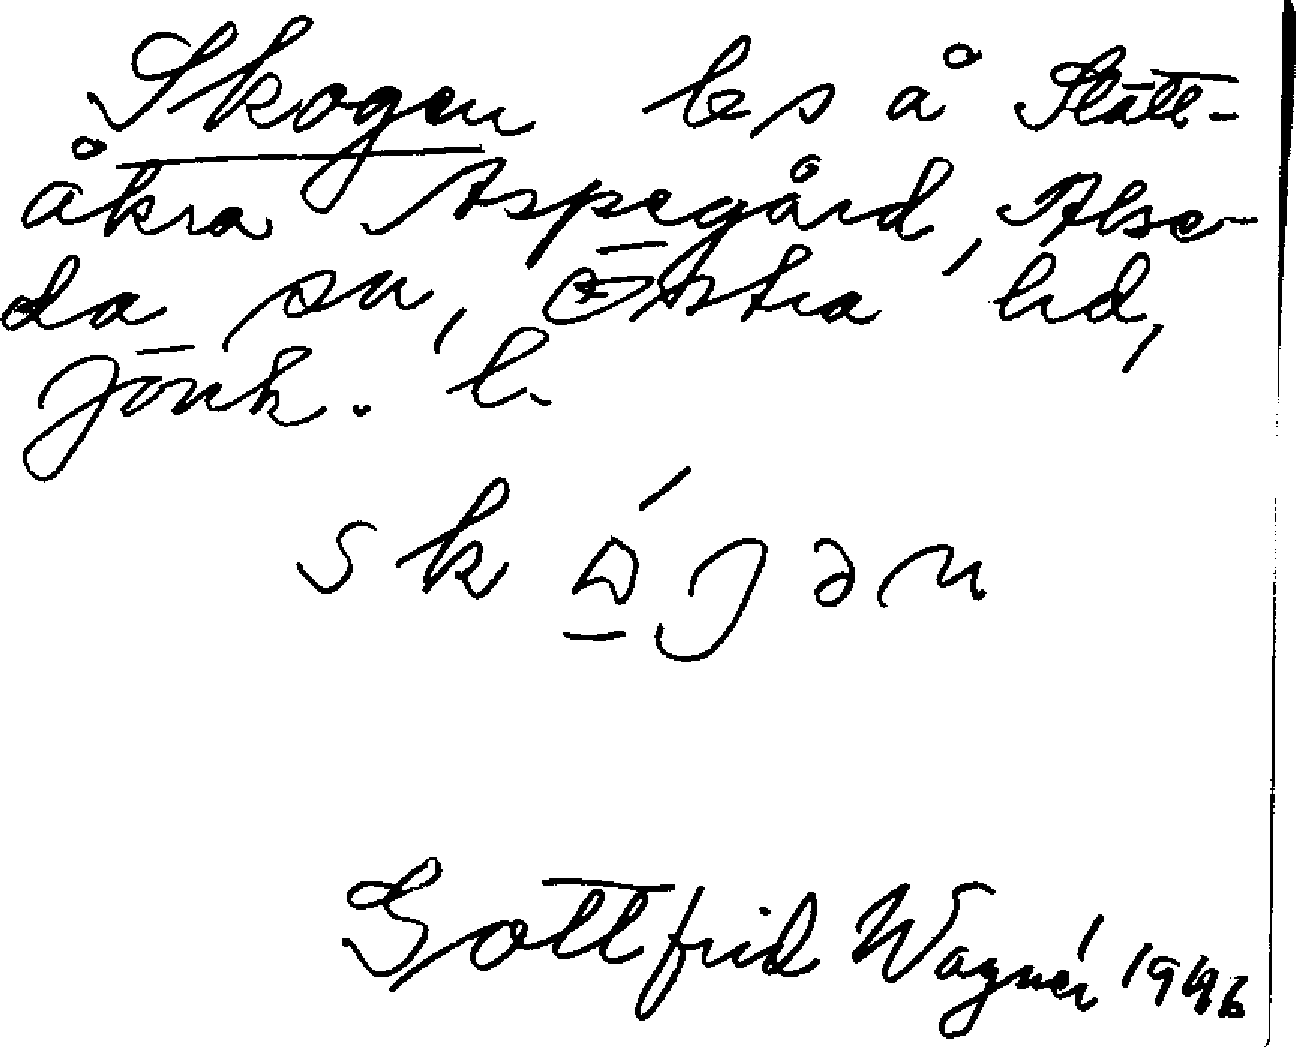 Skogen les å Slätt-
åkra Aspegård, Alse-
da sn, Östra hd,
Jönk. l.
skógən
Gottfrid Wagnér 1946